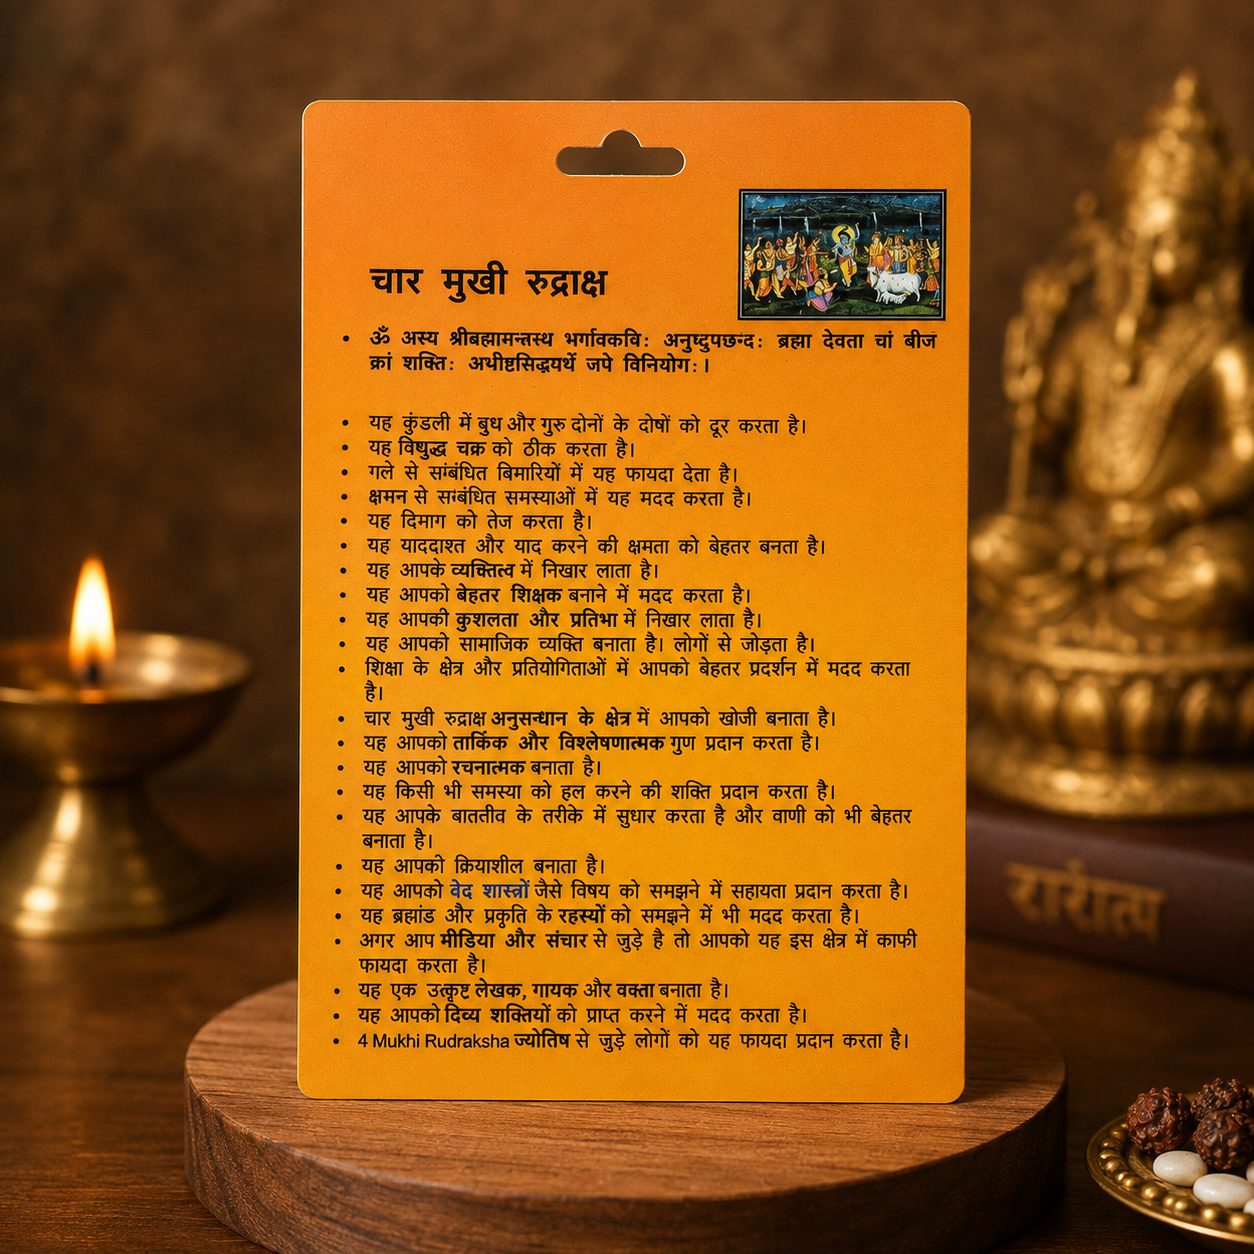 चार मुखी रुद्राक्ष
• ॐ अस्य श्रीबह्मामन्त्रस्थ भर्गावकवि: अनुष्टुपछन्द: ब्रह्मा देवता चां बीज
क्रां शक्ति: अथीष्टसिद्धयर्थे जपे विनियोग:।
• यह कुंडली में बुध और गुरु दोनों के दोषों को दूर करता है।
• यह विषुद्ध चक्र को ठीक करता है।
• गले से संबंधित बिमारियों में यह फायदा देता है।
• क्षमन से संबंधित समस्याओं में यह मदद करता है।
• यह दिमाग को तेज करता है।
• यह याददाश्त और याद करने की क्षमता को बेहतर बनता है।
• यह आपके व्यक्तित्व में निखार लाता है।
• यह आपको बेहतर शिक्षक बनाने में मदद करता है।
• यह आपकी कुशलता और प्रतिभा में निखार लाता है।
• यह आपको सामाजिक व्यक्ति बनाता है। लोगों से जोड़ता है।
• शिक्षा के क्षेत्र और प्रतियोगिताओं में आपको बेहतर प्रदर्शन में मदद करता
है।
• चार मुखी रुद्राक्ष अनुसन्धान के क्षेत्र में आपको खोजी बनाता है।
• यह आपको तार्किक और विश्लेषणात्मक गुण प्रदान करता है।
• यह आपको रचनात्मक बनाता है।
• यह किसी भी समस्या को हल करने की शक्ति प्रदान करता है।
• यह आपके बाततीव के तरीके में सुधार करता है और वाणी को भी बेहतर
बनाता है।
• यह आपको क्रियाशील बनाता है।
• यह आपको वेद शास्त्रों जैसे विषय को समझने में सहायता प्रदान करता है।
• यह ब्रह्मांड और प्रकृति के रहस्यों को समझने में भी मदद करता है।
• अगर आप मीडिया और संचार से जुड़े है तो आपको यह इस क्षेत्र में काफी
फायदा करता है।
• यह एक उत्कृष्ट लेखक, गायक और वक्ता बनाता है।
• यह आपको दिव्य शक्तियों को प्राप्त करने में मदद करता है।
• 4 Mukhi Rudraksha ज्योतिष से जुड़े लोगों को यह फायदा प्रदान करता है।